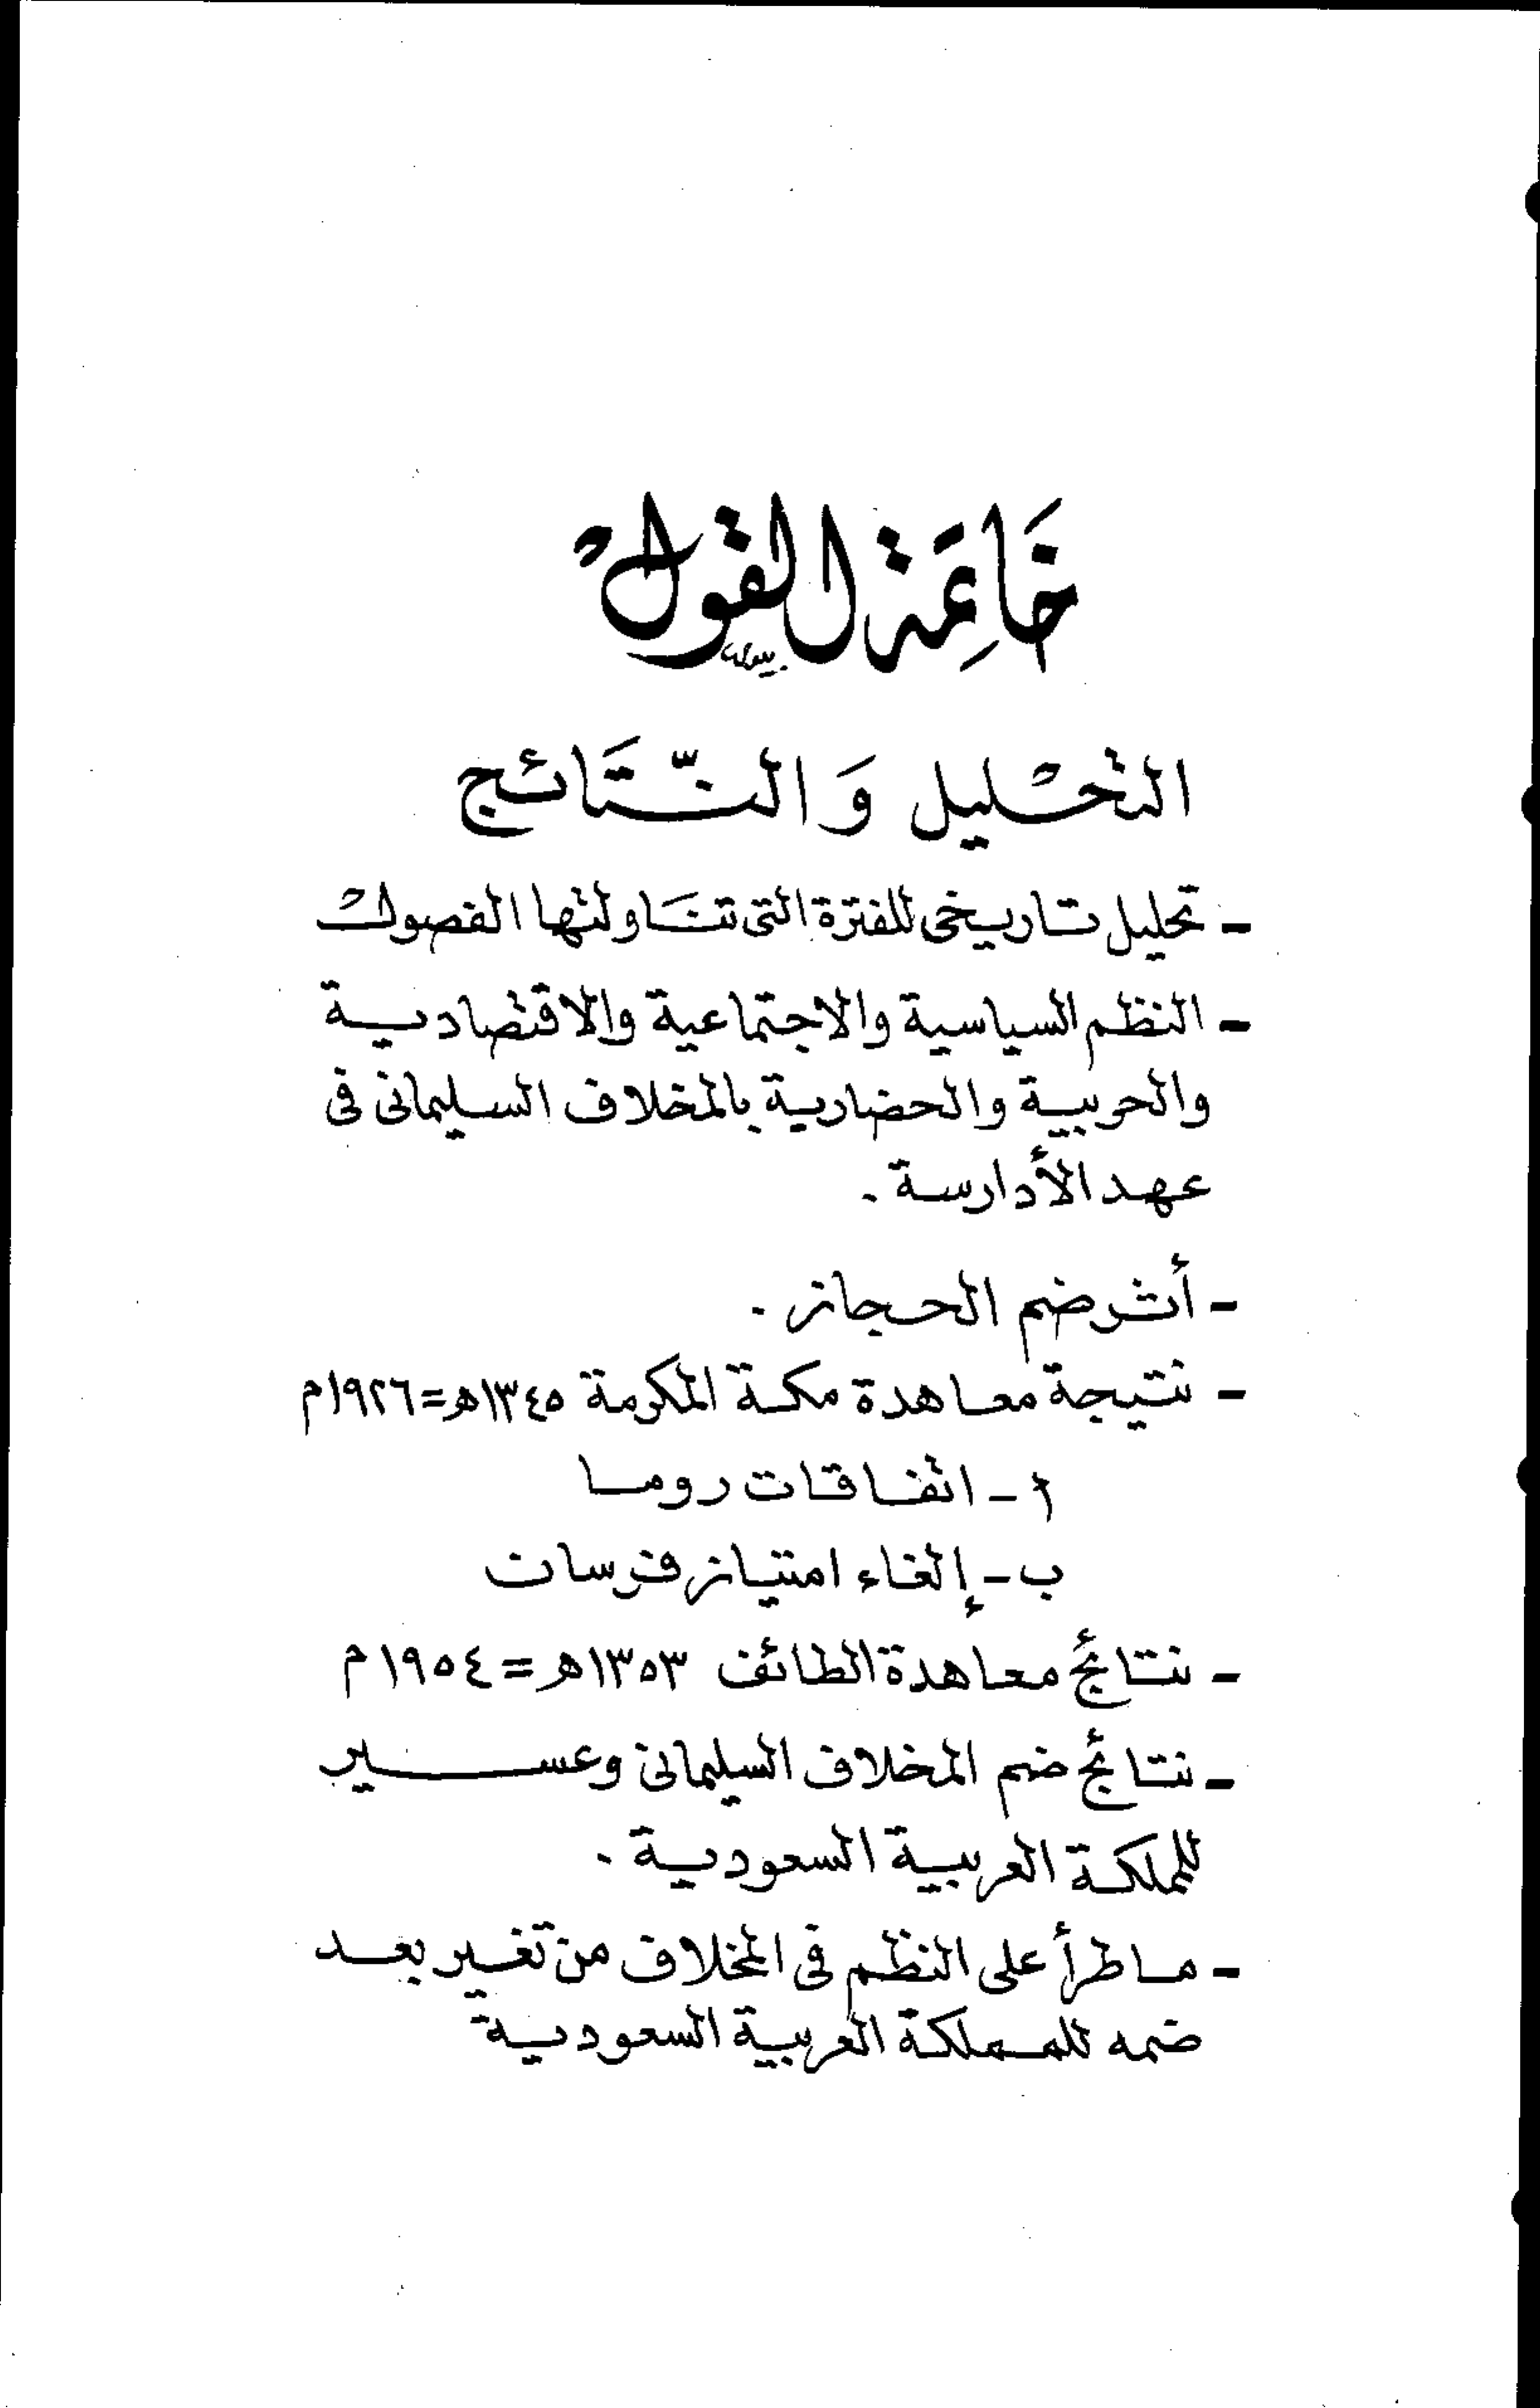 خَاتِمَة القول
التحْليل وَالنّتَائج
- تحليل تاريخى للفترة التى تتنَاولتها الفصول
- النظم السياسية والاجتماعية والاقتصادية
والحربية والحضارية بالمخلاف السليمانى فى
عهد الأدارسة .
- أثر ضم الحجاز .
- نتيجة معاهدة مكة المكرمة ١٣٤٥هـ=١٩٢٦م
أ - اتفاقات روما
ب - إلغاء امتياز فرسان
- نتائج معاهدة الطائف ١٣٥٣هـ = ١٩٥٤م
- نتائج ضم المخلاف السليمانى وعسير
للمملكة العربية السعودية .
- ماطرأ على النظم فى المخلاف من تغير بعد
ضمه للمملكة العربية السعودية